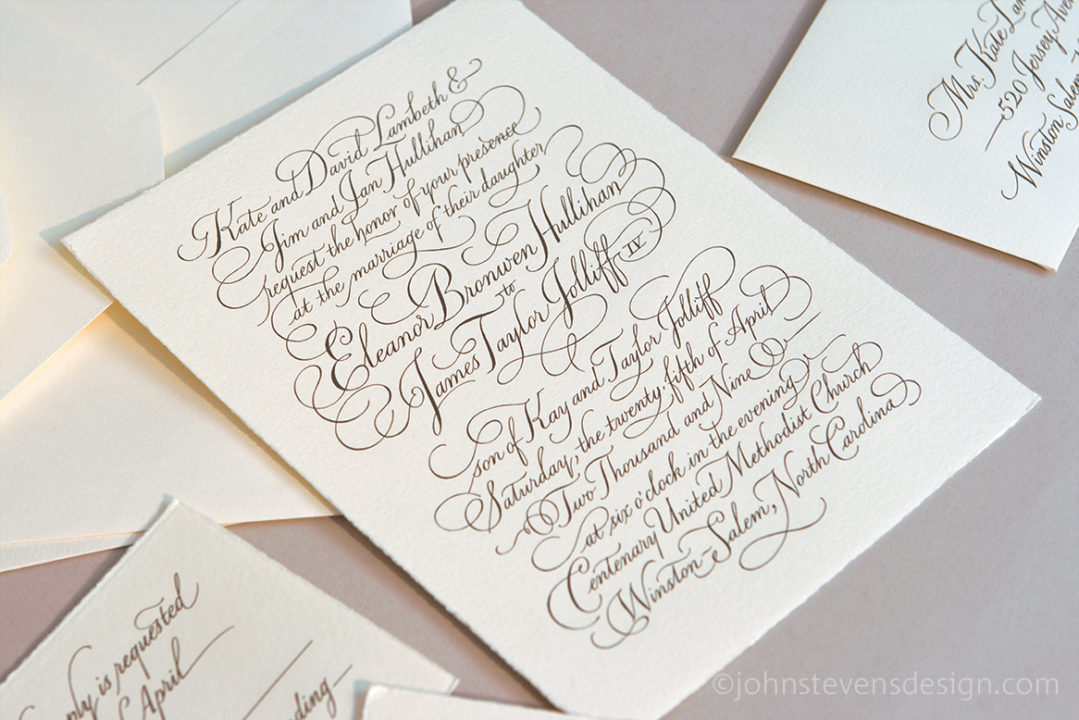 Kate and David Lambeth &
Jim and Jan Hullihan
request the honor of your presence
at the marriage of their daughter
Eleanor Bronwen Hullihan
to
James Taylor Jolliff IV
son of Kay and Taylor Jolliff
Saturday, the twenty-fifth of April
Two Thousand and Nine
at six o'clock in the evening
Centenary United Methodist Church
Winston-Salem, North Carolina
Mrs. Kate Lam
520 Jersey Ave
Winston Salem
ply is requested
April
nding
©johnstevensdesign.com